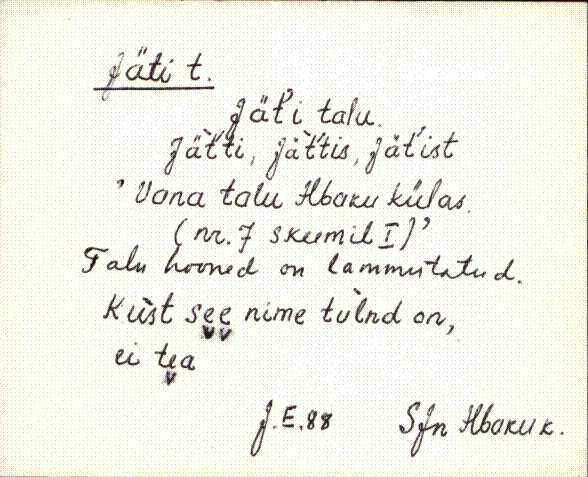 Jäti t.
Jät'i talu.
Jät̀'ti, Jät̀'tis, Jät'ist
"Vana talu Hbaku külas.
(nr. 7 skeemil I)"
Talu hooned on lammutatud.
Kùst see nime tùlnd on,
ei tea
J.E.88 Sjn Hbaku k.